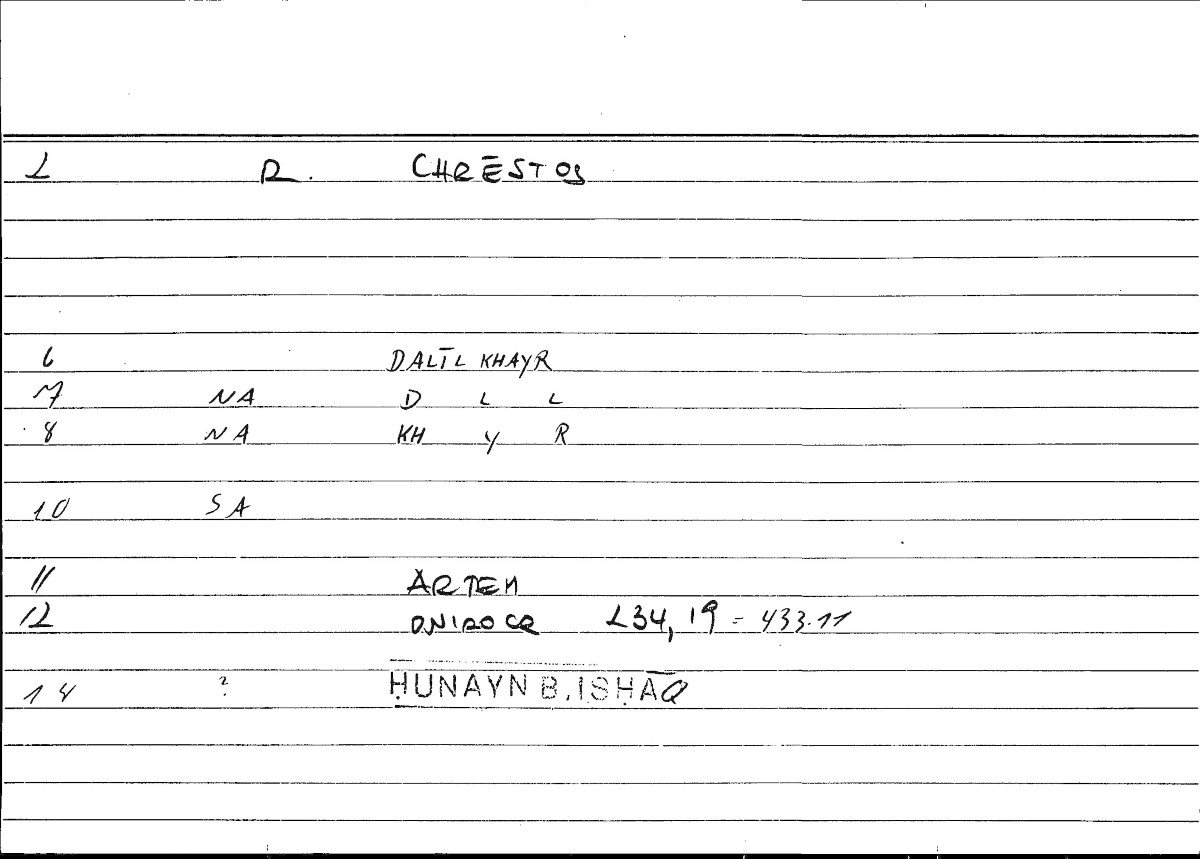 2 R. CHRĒSTOS
6 DALĪL KHAYR
7 NA D L L
8 NA KH Y R
10 SA
11 ARTEM
12 ONIROCR 234,19 = 433.11
14 ? ḤUNAYN B. ISḤĀQ